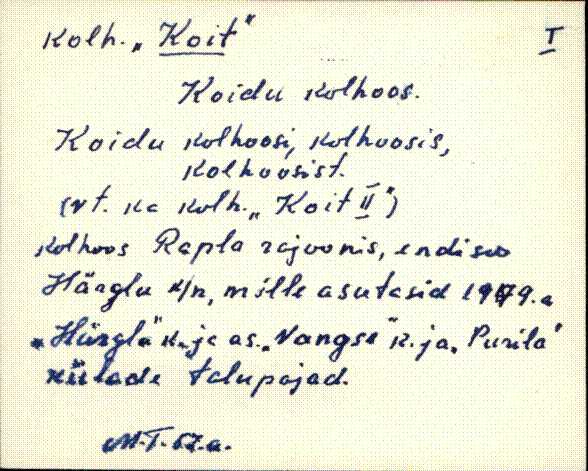 Kolh. „Koit" I
Koidu kolhoos.
Koidu kolhoosi, kolhoosis,
kolhoosist.
(vt. ka kolh. „Koit II")
kolhoos Rapla rajoonis, endises
Härglu k/n, mille asutasid 1949. a
„Härgla" k. ja as. „Vangse" k. ja „Purila"
külade talupojad.
M.T. 67. a.